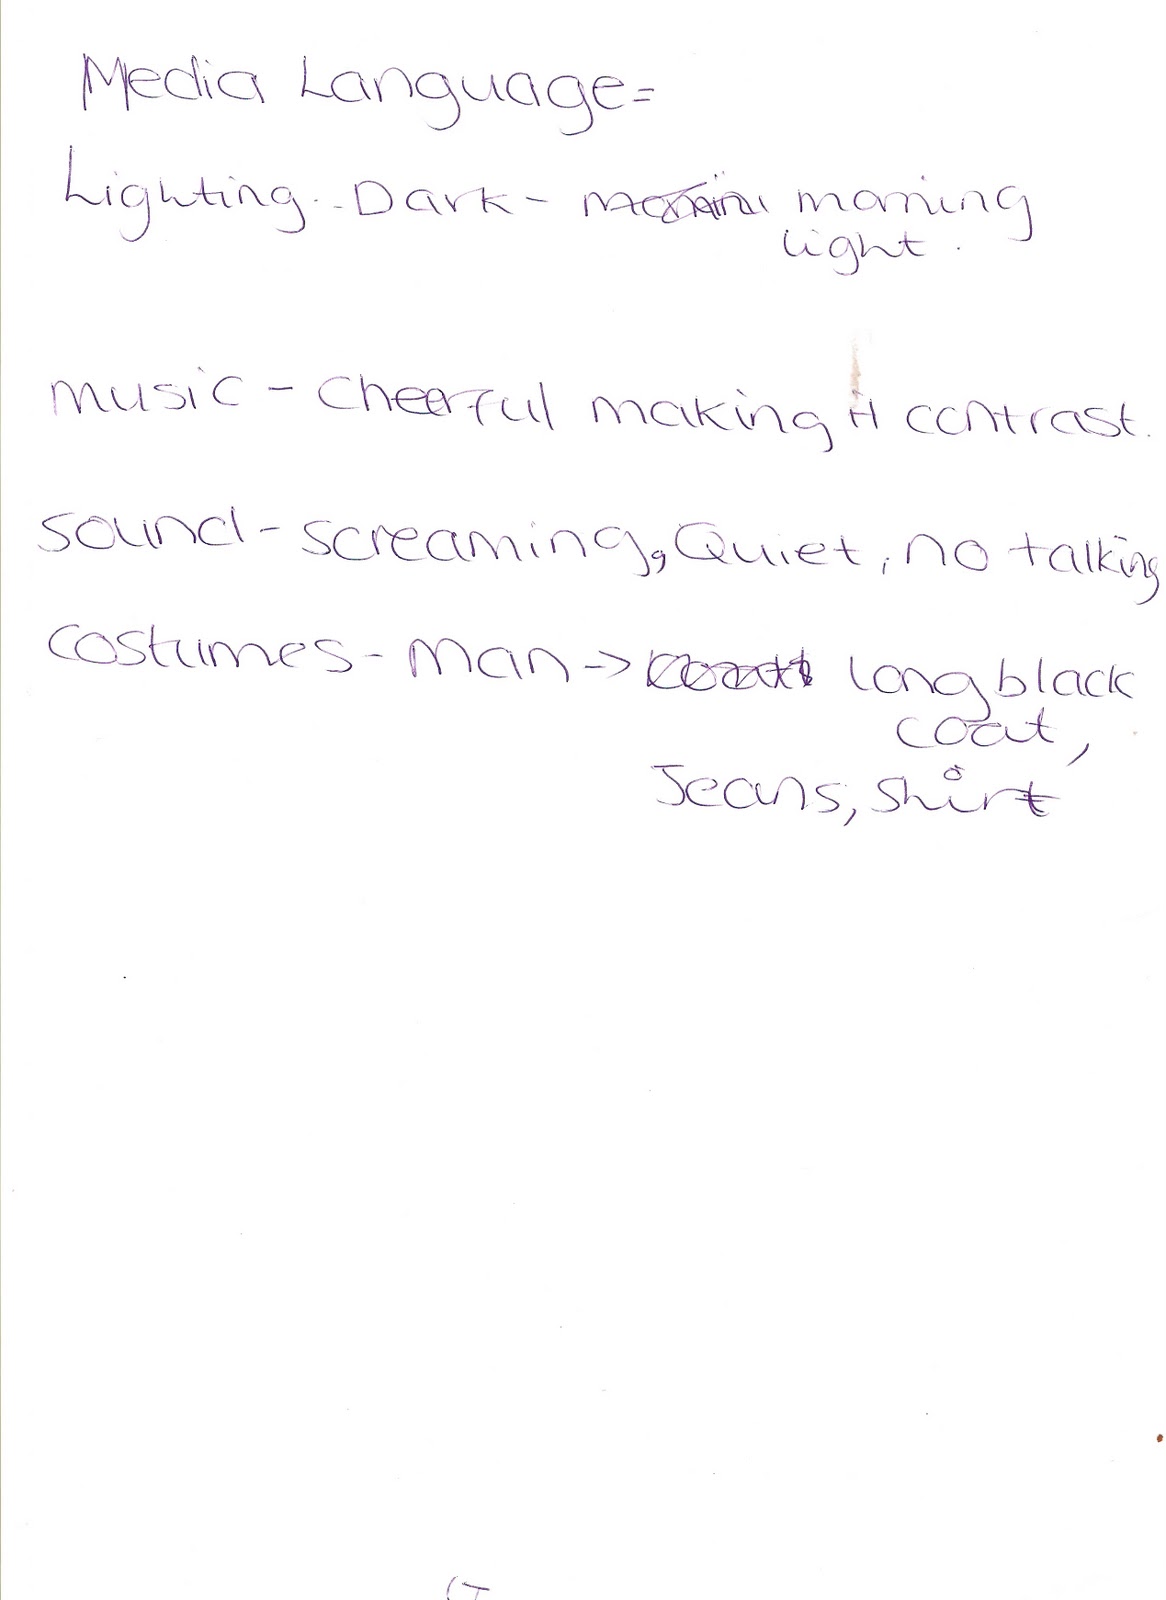 Media Language=
Lighting - Dark - morning
light.
music - Cheerful making it contrast.
sound - screaming, Quiet, no talking
costumes - man -> long black
coat,
Jeans, shirt